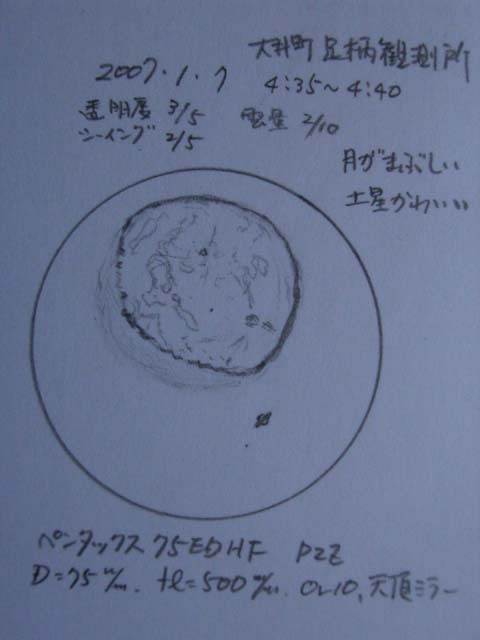 大井町 足柄観測所
2007.1.7 4:35～4:40
透明度 3/5 雲量 2/10
シーイング 2/5
月がまぶしい
土星かわいい
ペンタックス 75EDHF P2Z
D=75m/m. fl=500m/m. Or10, 天頂ミラー